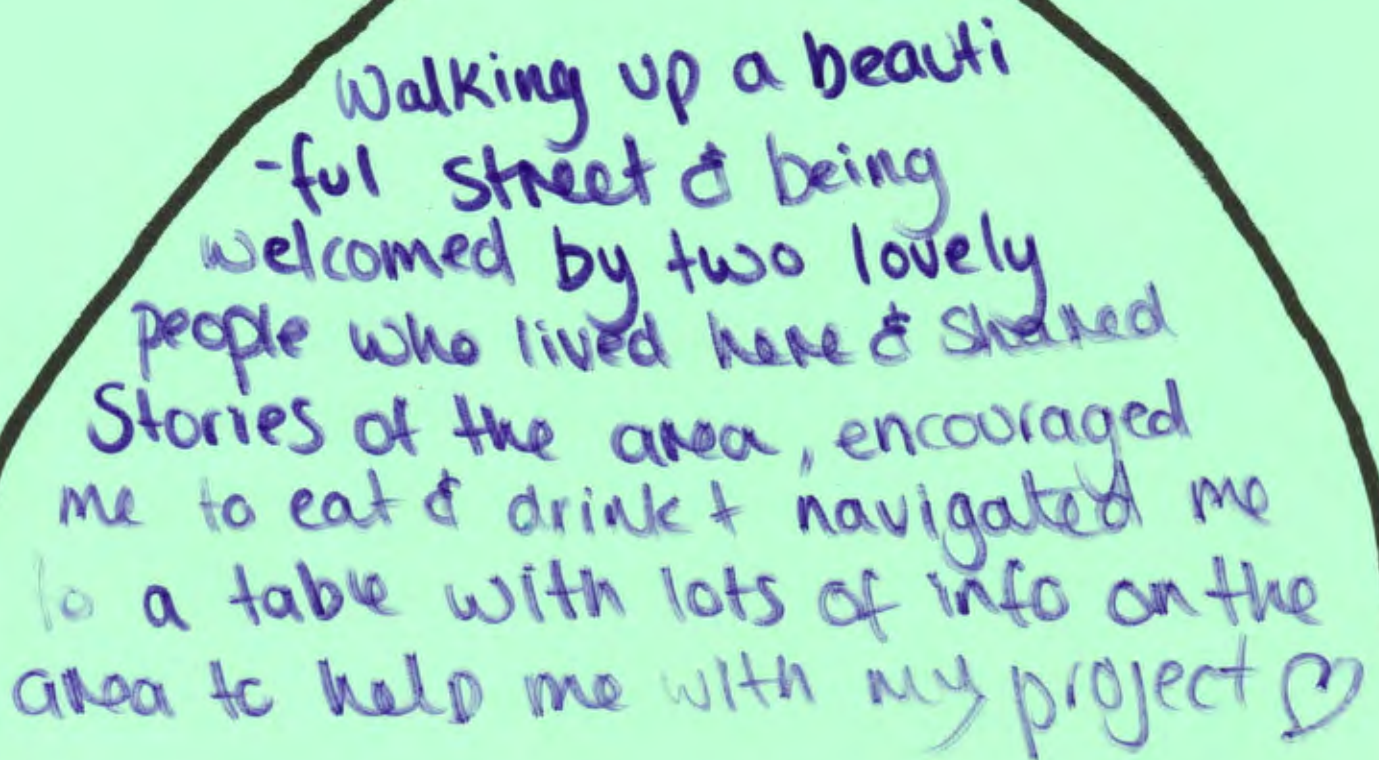 Walking up a beauti
-ful street & being
welcomed by two lovely
people who lived here & shared
Stories of the area, encouraged
me to eat & drink + navigated me
to a table with lots of info on the
area to help me with my project ♡